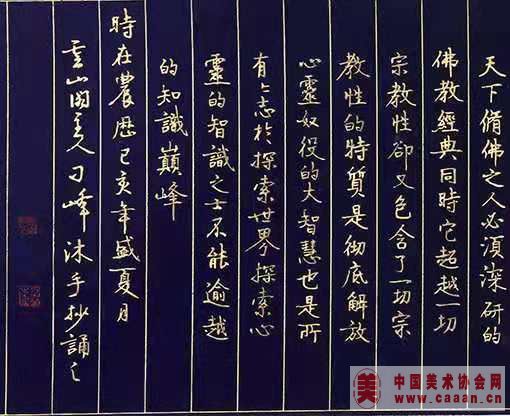 天下脩佛之人必須深研的
佛教經典同時它超越一切
宗教性卻又包含了一切宗
教性的特質是彻底解放
心靈奴役的大智慧也是所
有有志於探索世界探索心
靈的智識之士不能逾越
的知識巔峰
時在農歷己亥年盛夏月
雲山閣主人刁峰沐手抄誦之
美
中国美术协会网
www.caaan.cn